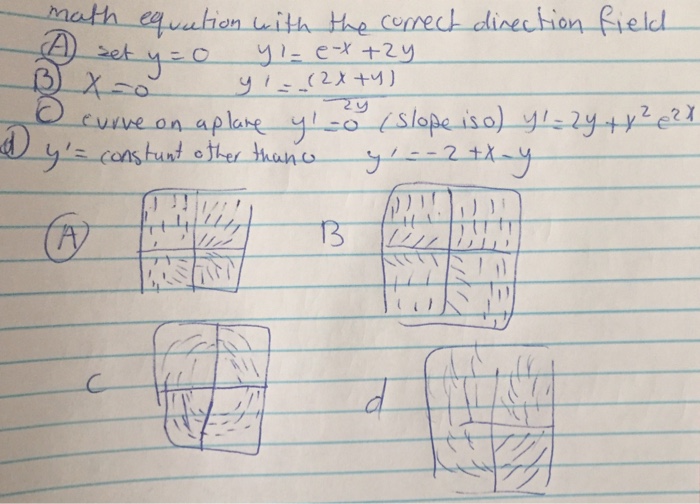 math equation with the correct direction field
A set y=0 y' = e-x + 2y
B X=0 y' = -(2x+y)
2y
C curve on a plane y'=0 (slope iso) y' = 2y + x² e^2x
d y' = constant other than o y' = -2 + x - y
A B
C d